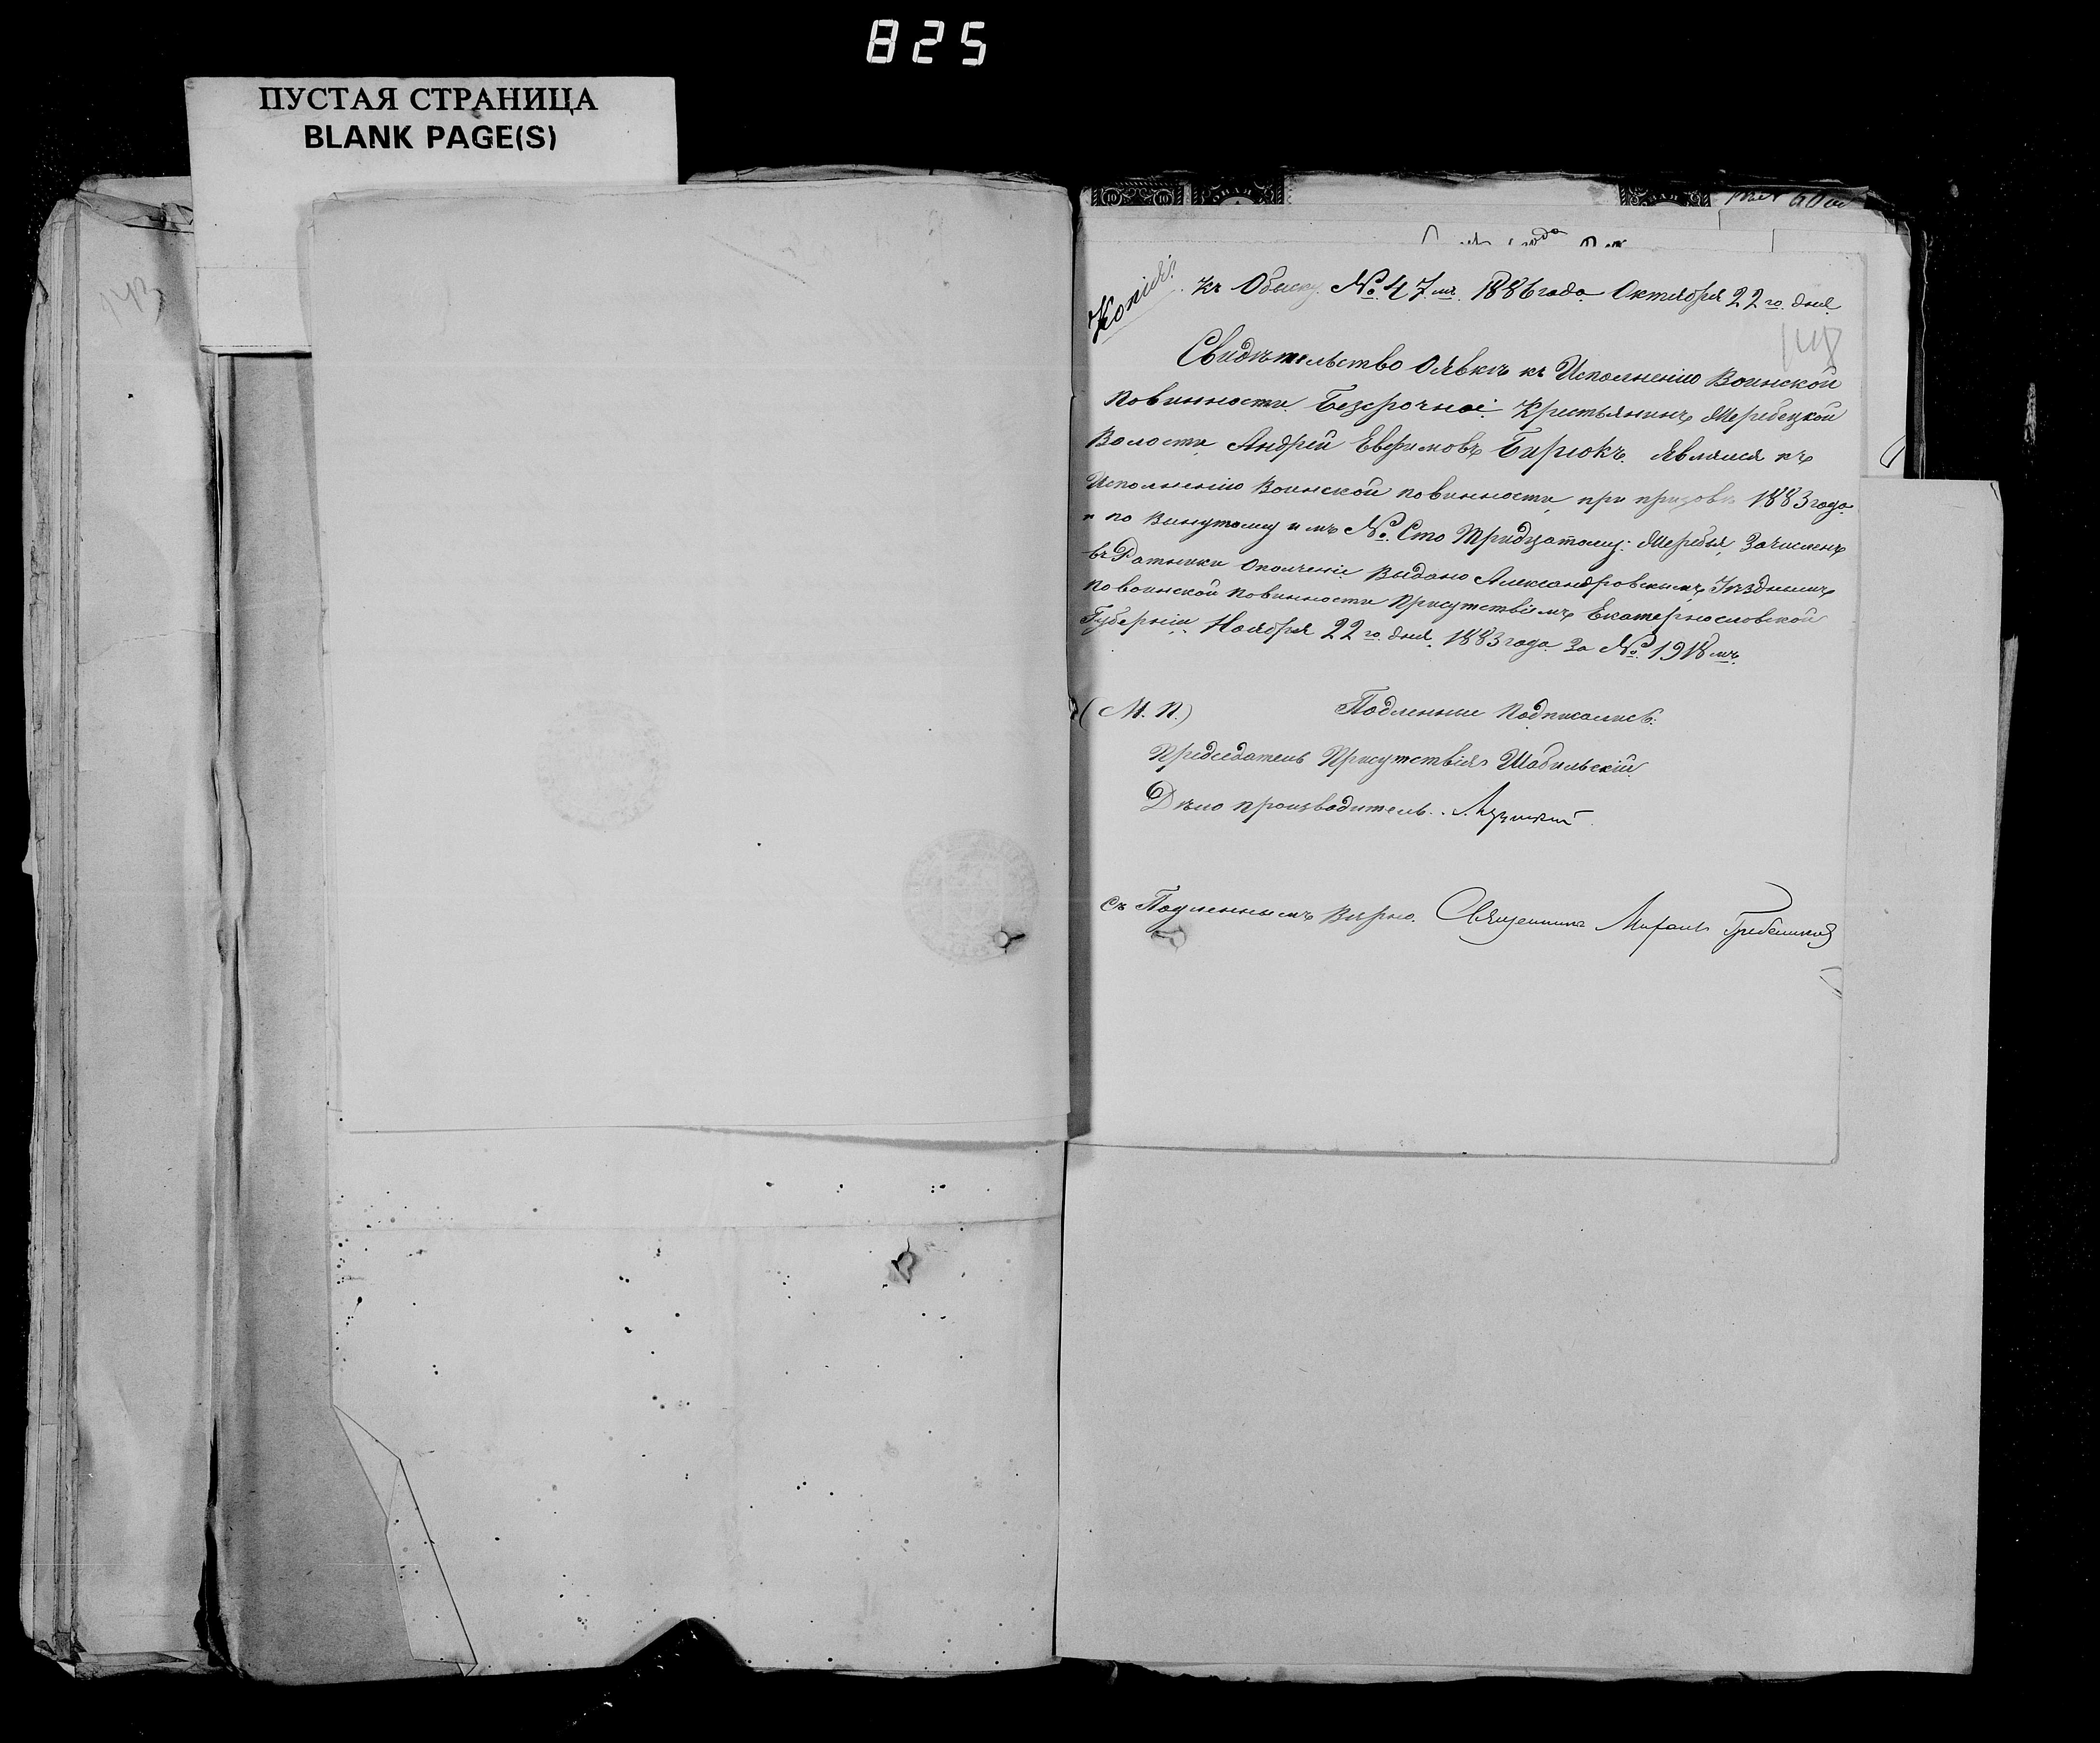 825
ПУСТАЯ СТРАНИЦА
BLANK PAGE(S)
143
Копія. къ Обыску № 47мъ 1886 года Октября 22го дня
148
Свидѣтельство О явкѣ къ Исполненію Воинской
повинности Безсрочное Крестьянинъ Жеребецкой
Волости Андрей Евфимовъ Бирюкъ явлился къ
Исполненію Воинской повинности при призовѣ 1883 года
и по Винутому имъ № Сто Тридцатому: Жеребья, Зачисленъ
въ Ратники Ополченіе Выдано Александровскимъ Уѣзднымъ
по воинской повинности Присутствіемъ Екатернословской
Губерніи Ноября 22го дня 1883 года За № 1918мъ
(М. П.) Подленные Подписались:
Председатель Присутствія Шабельскій
Дѣло производитель
Съ Подленнымъ Вѣрно. Священникъ Михаилъ